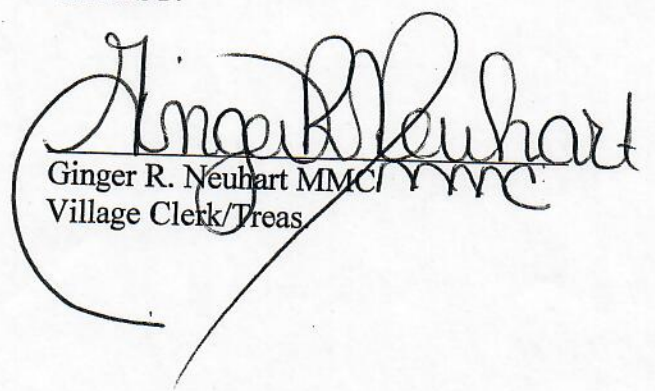 Ginger R Neuhart
MMC
Ginger R. Neuhart MMC
Village Clerk/Treas.